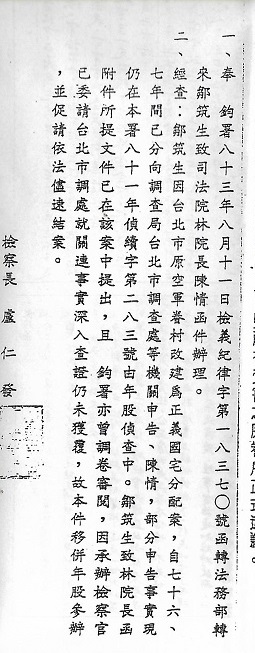 一、奉　鈞署八十三年八月十一日檢義紀律字第一八三七〇號函轉法務部轉
來鄒筑生致司法院林院長陳情函件辦理。
二、經查：鄒筑生因台北市原空軍眷村改建爲正義國宅分配案，自七十六、
七年間已分向調查局台北市調查處等機關申告、陳情，部分申告事實現
仍在本署八十一年偵續字第二八三號由年股偵查中。鄒筑生致林院長函
附件所提文件已在該案中提出，且　鈞署亦曾調卷審閱，因承辦檢察官
已委請台北市調處就關連事實深入查證仍未獲覆，故本件移併年股參辦
，並促請依法儘速結案。
檢察長　盧仁發